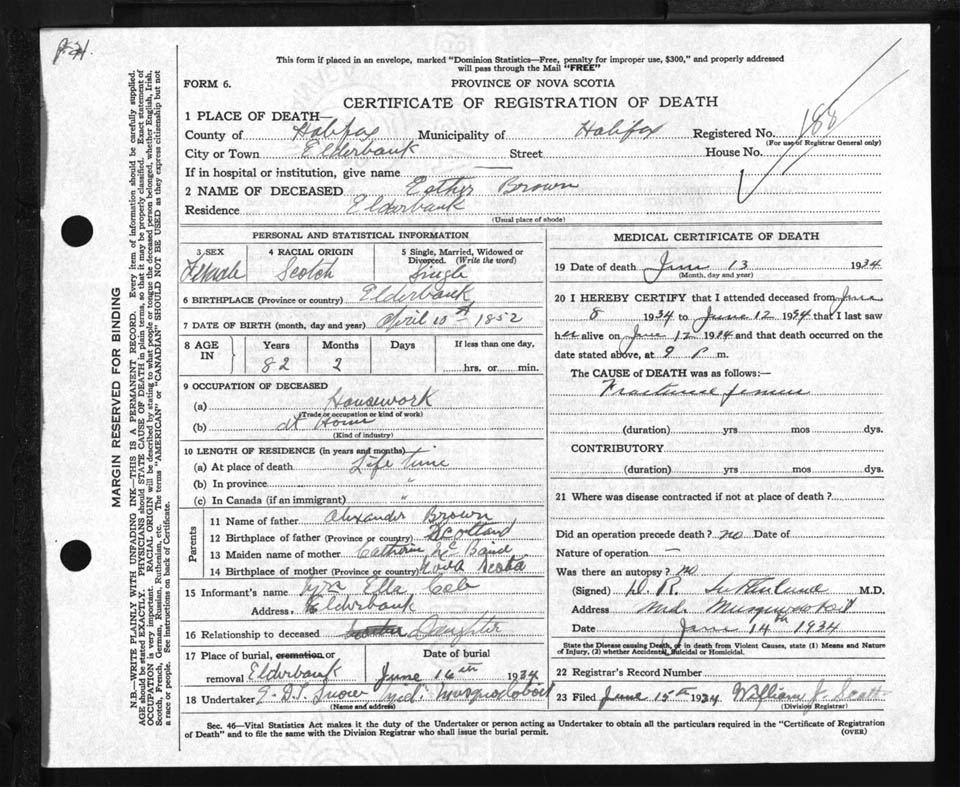 This form if placed in an envelope, marked "Dominion Statistics—Free, penalty for improper use, $300," and properly addressed
will pass through the Mail "FREE"
FORM 6.
PROVINCE OF NOVA SCOTIA
CERTIFICATE OF REGISTRATION OF DEATH
1 PLACE OF DEATH—
County of Halifax Municipality of Halifax Registered No. 188
(For use of Registrar General only)
City or Town Elderbank Street House No.
If in hospital or institution, give name
2 NAME OF DECEASED Esther Brown
Residence Elderbank
(Usual place of abode)
MARGIN RESERVED FOR BINDING
N.B.—WRITE PLAINLY WITH UNFADING INK—THIS IS A PERMANENT RECORD. Every item of information should be carefully supplied.
AGE should be stated EXACTLY. PHYSICIANS should STATE CAUSE OF DEATH in plain terms, so that it may be properly classified. Exact statement of
OCCUPATION is very important. RACIAL ORIGIN will be described by stating to what people or tongue the deceased person belonged, whether English, Irish,
Scotch, French, German, Russian, Ruthenian, etc. The terms "AMERICAN" or "CANADIAN" SHOULD NOT BE USED as they express citizenship but not
a race or people. See instructions on back of Certificate.
PERSONAL AND STATISTICAL INFORMATION
3 SEX
Female
4 RACIAL ORIGIN
Scotch
5 Single, Married, Widowed or
Divorced. (Write the word)
Single
6 BIRTHPLACE (Province or country) Elderbank
7 DATE OF BIRTH (month, day and year) April 10th 1852
8 AGE
IN
Years Months Days If less than one day,
82 2 hrs. or min.
9 OCCUPATION OF DECEASED
(a) Housework
(Trade or occupation or kind of work)
(b) At Home
(Kind of industry)
10 LENGTH OF RESIDENCE (in years and months)
(a) At place of death Life time
(b) In province "
(c) In Canada (if an immigrant) "
Parents
11 Name of father Alexander Brown
12 Birthplace of father (Province or country) Scotland
13 Maiden name of mother Catherine
14 Birthplace of mother (Province or country) Nova Scotia
15 Informant's name Ella Cole
Address Elderbank
16 Relationship to deceased Daughter
17 Place of burial, cremation or
removal Elderbank
Date of burial
June 16th 1934
18 Undertaker Mid. Musquodoboit
(Name and address)
MEDICAL CERTIFICATE OF DEATH
19 Date of death June 13 1934
(Month, day and year)
20 I HEREBY CERTIFY that I attended deceased from June
8 1934 to June 12 1934 that I last saw
her alive on June 12 1934 and that death occurred on the
date stated above, at 9 P m.
The CAUSE of DEATH was as follows:—
Fractured femur
(duration) yrs mos dys.
CONTRIBUTORY
(duration) yrs mos dys.
21 Where was disease contracted if not at place of death?
Did an operation precede death? no Date of
Nature of operation —
Was there an autopsy? no
(Signed) D. R. Sutherland M.D.
Address Mid. Musquodoboit
Date June 14th 1934
State the Disease causing Death, or in death from Violent Causes, state (1) Means and Nature
of Injury, (2) whether Accidental, Suicidal or Homicidal.
22 Registrar's Record Number
23 Filed June 15th 1934 William J.
(Division Registrar)
Sec. 46—Vital Statistics Act makes it the duty of the Undertaker or person acting as Undertaker to obtain all the particulars required in the "Certificate of Registration
of Death" and to file the same with the Division Registrar who shall issue the burial permit.
(OVER)